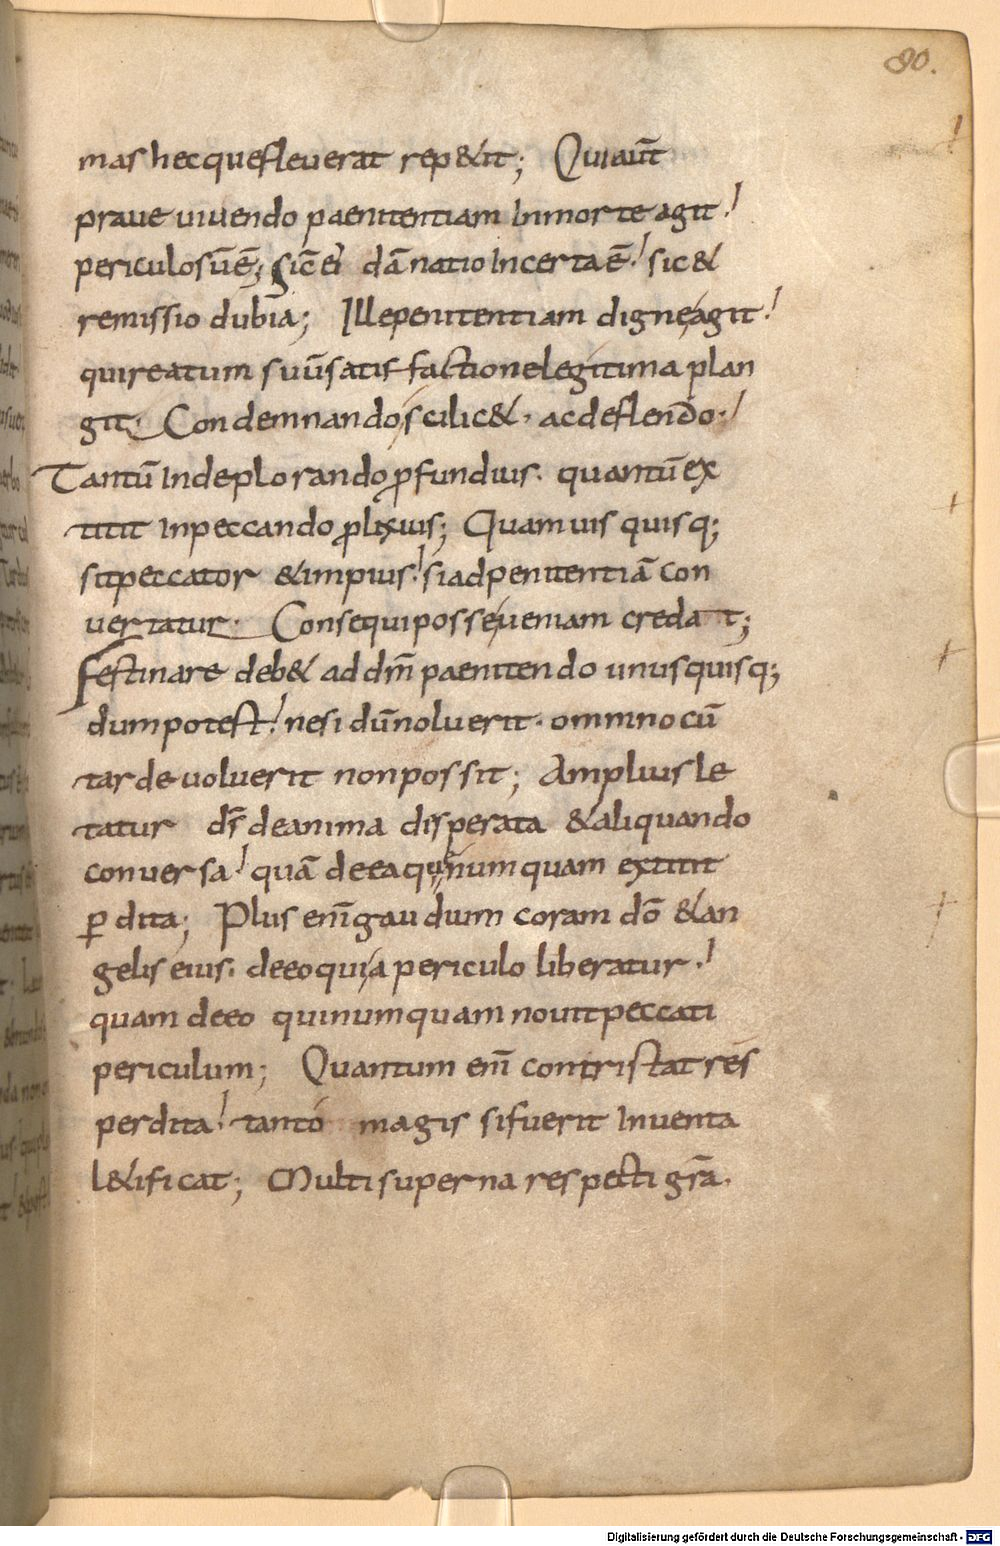 80.
mas hec quefleuerat rep&it; Qui aut̄
praue uiuendo paenitentiam Inmorte agit!
periculosūē; sic̄ ei dānatio Incerta ē! sic &
remissio dubia; Ille penitentiam digne agit!
qui reatum suū satisfactione legitima plan
git. Condemnando scilic&. ac deflendo!
Tantū In deplorando ꝓfundius. quantū ex
titit Inpeccando ꝓlixius; Quamuis quisq;
sit peccator & impius! si ad penitentiā con
uertatur. Consequi posse ueniam credat;
festinare deb& ad dm̄ paenitendo unusquisq;
dum potest! ne si dū noluerit. omnino cū
tarde uoluerit non possit; Amplius le
tatur ds̄ de anima disperata & aliquando
conuersa! quā de ea quȩ numquam extitit
ꝑdita; Plus enī gaudium coram dō & an
gelis eius. de eo qui a periculo liberatur!
quam de eo qui numquam nouit peccati
periculum; Quantum enī contristat res
perdita! tanto magis si fuerit Inuenta
l&ificat; Multi superna respecti gr̄a.
Digitalisierung gefördert durch die Deutsche Forschungsgemeinschaft - DFG